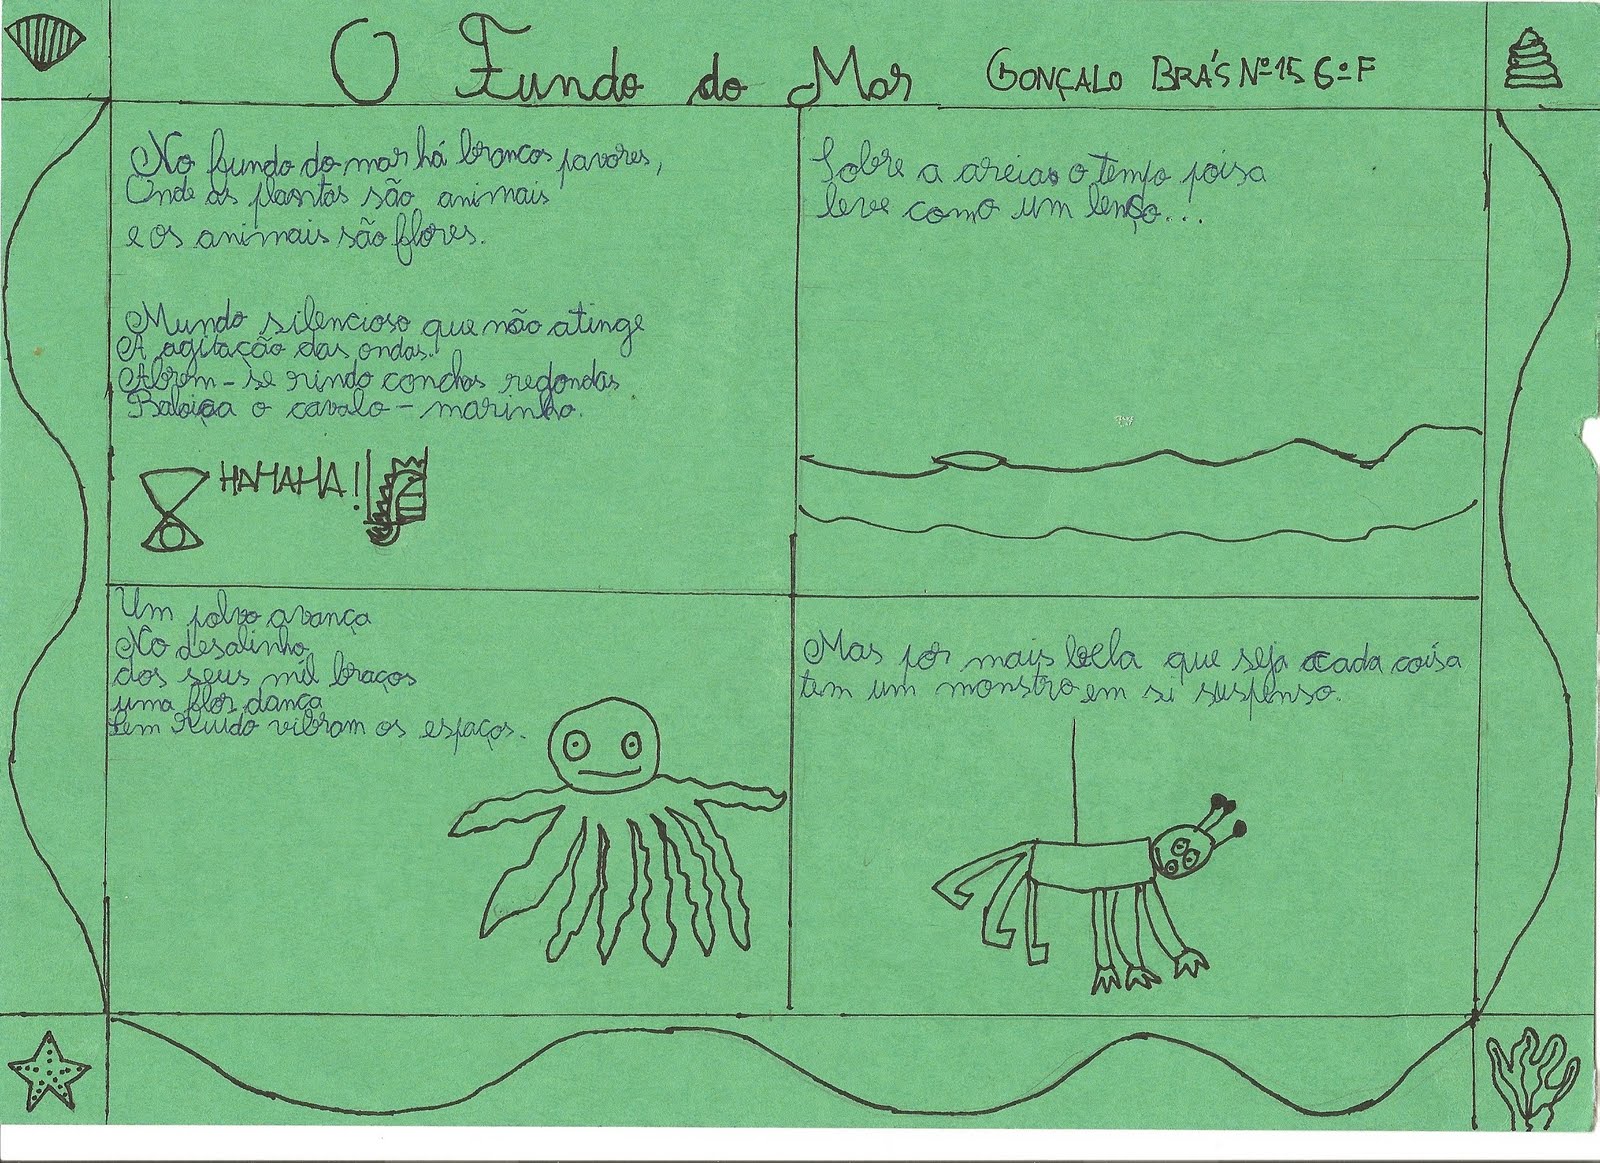 O Fundo do Mar
GONÇALO BRÁS Nº15 6ºF
No fundo do mar há brancos pavores,
Onde as plantas são animais
e os animais são flores.
Mundo silencioso que não atinge
A agitação das ondas.
Abrem-se rindo conchas redondas
Baloiça o cavalo-marinho.
HAHAHA!
Um polvo avança
No desalinho
dos seus mil braços
uma flor dança
Sem ruído vibram os espaços.
Sobre a areia o tempo poisa
leve como um lenço...
Mas por mais bela que seja cada coisa
tem um monstro em si suspenso.